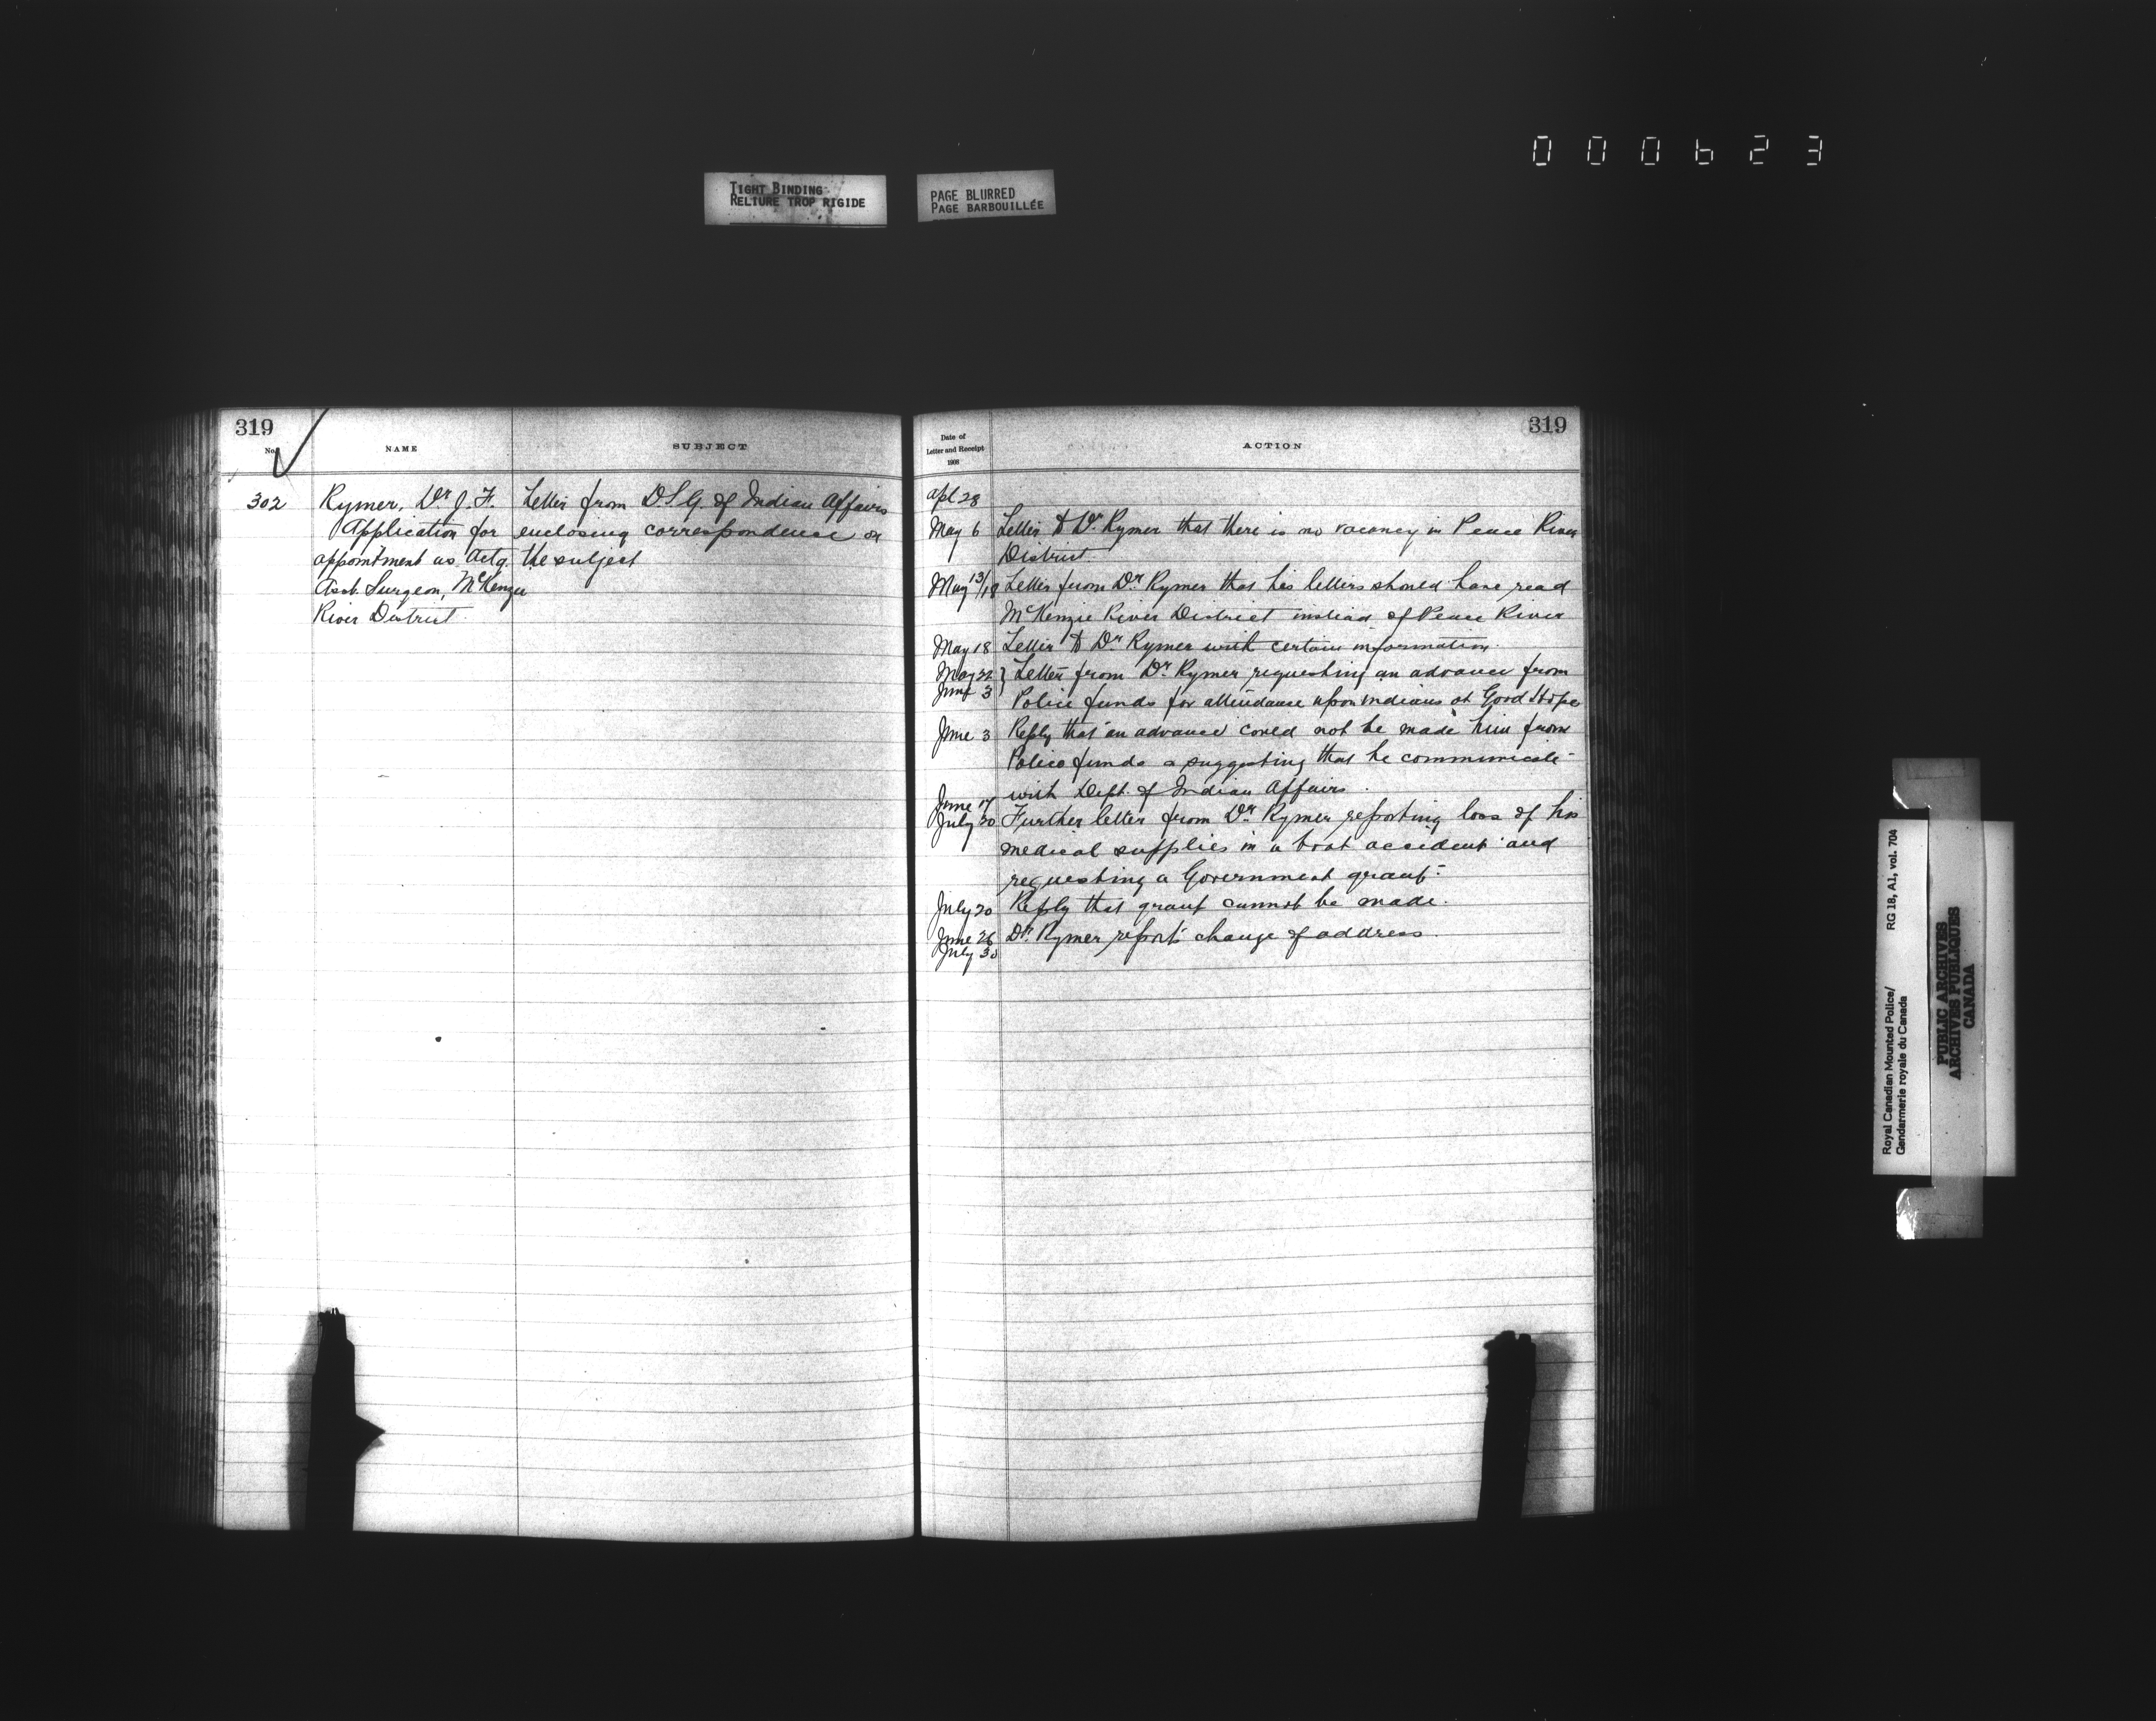 0 0 0 6 2 3
TIGHT BINDING
RELIURE TROP RIGIDE
PAGE BLURRED
PAGE BARBOUILLÉE
319
No.
NAME
SUBJECT
302
Rymer, Dr J. F.
Application for
appointment as Actg.
Asst. Surgeon, McKenzie
River District.
Letter from D.S.G. of Indian Affairs
enclosing correspondence on
the subject
319
Date of
Letter and Receipt
1908
ACTION
Apl 28
May 6 Letter to Dr. Rymer that there is no vacancy in Peace River
District.
May 13/18 Letter from Dr Rymer that his letters should have read
McKenzie River District instead of Peace River
May 18 Letter to Dr Rymer with certain information.
May 22 } Letter from Dr. Rymer requesting an advance from
June 3 Police funds for attendance upon Indians at Good Hope
June 3 Reply that an advance could not be made him from
Police funds & suggesting that he communicate
with Dept. of Indian Affairs.
June 17
July 20 Further letter from Dr. Rymer reporting loss of his
medical supplies in a boat accident and
requesting a Government grant.
July 20 Reply that grant cannot be made.
June 26 Dr. Rymer reports change of address.
July 30
Royal Canadian Mounted Police/
Gendarmerie royale du Canada
RG 18, A1, vol. 704
PUBLIC ARCHIVES
ARCHIVES PUBLIQUES
CANADA